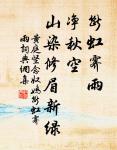 断虹霁雨
净秋空
山染修眉新绿
黄庭坚念奴娇断虹霁
雨词典网集